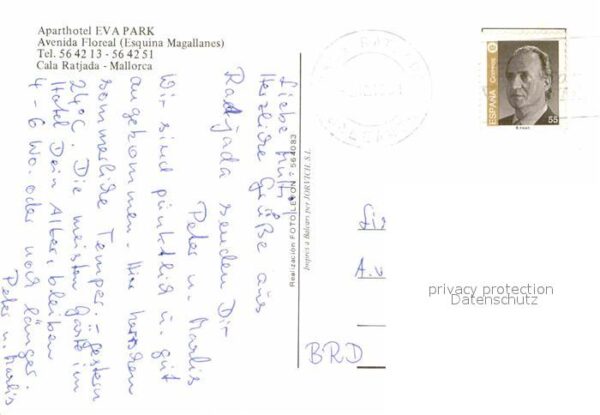 Aparthotel EVA PARK
Avenida Floreal (Esquina Magallanes)
Tel. 56 42 13 - 56 42 51
Cala Ratjada - Mallorca
Liebe
Herzliche Grüße aus
Ratjada senden Dir
Peter u. Marlis
Wir sind pünktlich u. gut
angekommen. Hier herrschen
sommerliche Temper. = gestern
24°C. Die meisten Gäste im
Hotel Dein Alter, bleiben
4 - 6 Wo. oder noch länger.
Peter u. Marlis
Realización FOTO LEFON - 564083
Impres a Balears per JORVICH, S.L.
ESPAÑA
Correos
55
A.v
BRD
privacy protection
Datenschutz